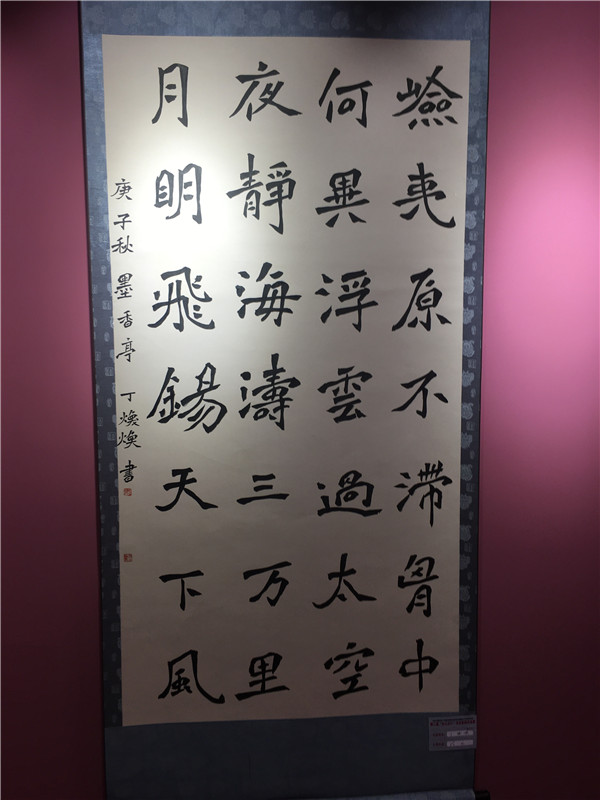 嶮夷原不滯胷中
何異浮雲過太空
夜靜海濤三万里
月眀飛錫天下風
庚子秋 墨香亭 丁煥煥書